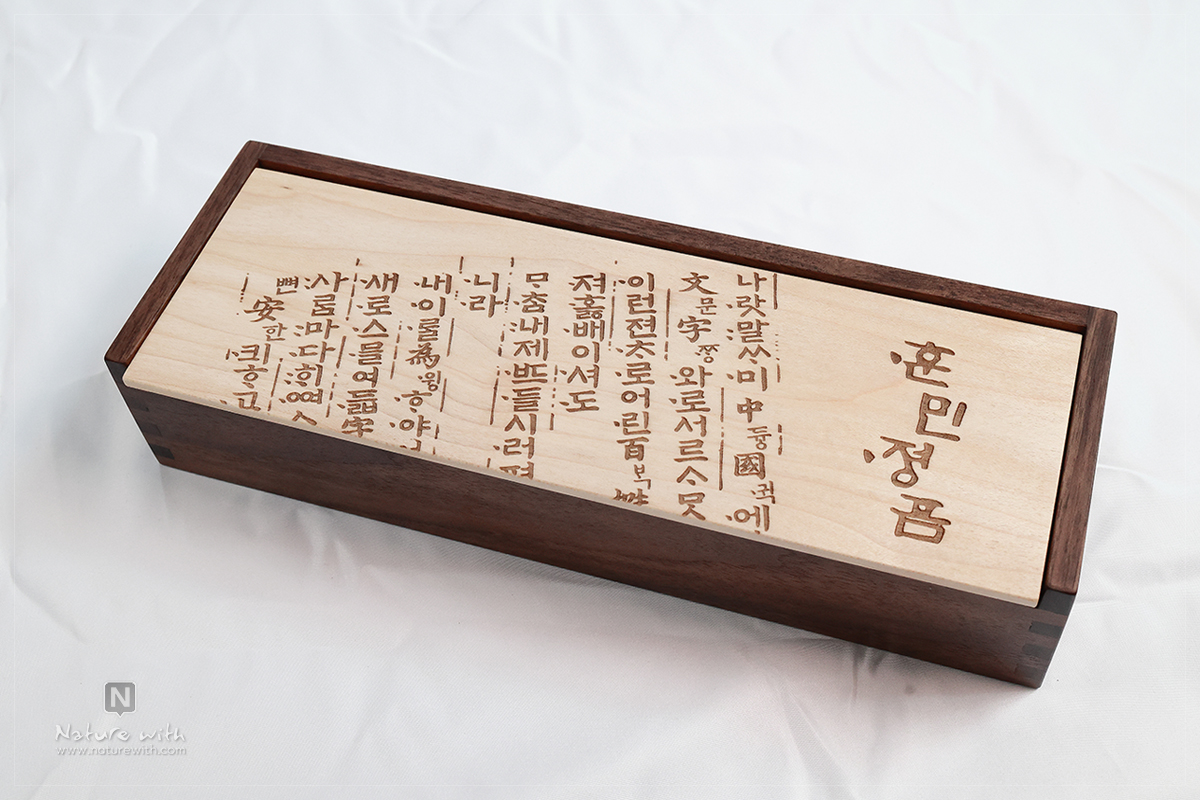 ·훈민·졍음
나·랏:말ᄊᆞ·미中듕國귁·에
文문字ᄍᆞᆼ·와로서르ᄉᆞᄆᆞᆺ
·이런젼·ᄎᆞ·로어·린百ᄇᆡᆨ
·져홇·배이·셔·도
ᄆᆞ·ᄎᆞᆷ:내제·ᄠᅳ·들시·러펴
니·라
·내·이·ᄅᆞᆯ為·윙·ᄒᆞ·야
·새·로·스·믈여·듧字
:사ᄅᆞᆷ:마·다:ᄒᆡ·ᅇᅧ
뼌安한·킈ᄒᆞ·고
N
Nature with
www.naturewith.com